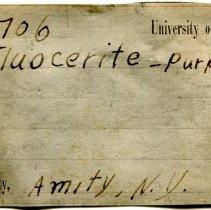 706 University of
Fluocerite - Purp
Amity, N.Y.